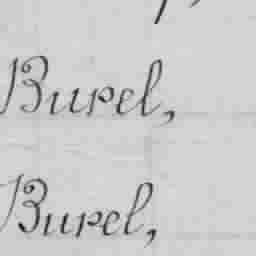 Burel,
Burel,